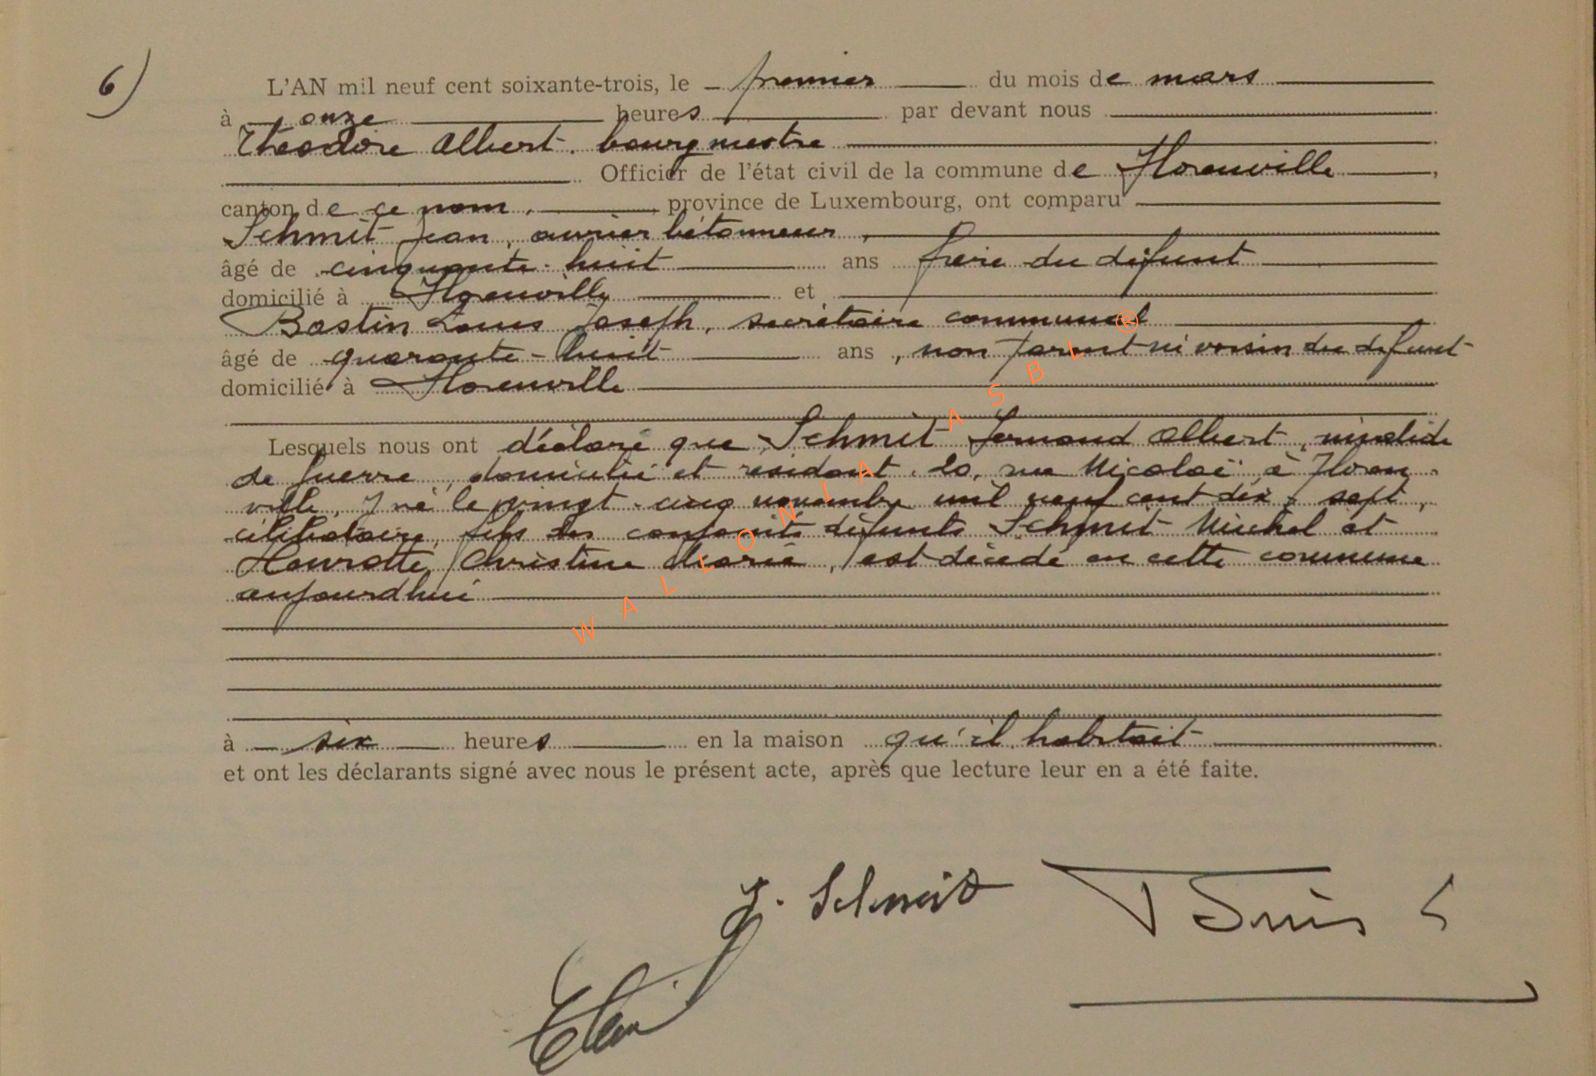 6)
L'AN mil neuf cent soixante-trois, le premier du mois de mars
à onze heures par devant nous
Théodore Albert. bourgmestre
Officier de l'état civil de la commune de Florenville,
canton de ce nom, province de Luxembourg, ont comparu
Schmit Jean, ouvrier bétonneur,
âgé de cinquante-huit ans frère du défunt
domicilié à Florenville et
Bastin Louis Joseph, secrétaire communal
âgé de quarante-huit ans, non parent ni voisin du défunt
domicilié à Florenville
Lesquels nous ont déclaré que Schmit Fernand Albert, invalide
de guerre, domicilié et résidant 20, rue Nicolaï à Floren-
ville, né le vingt-cinq novembre mil neuf cent dix-sept,
célibataire, fils des conjoints défunts Schmit Michel et
Henrotte Christine Marie, est décédé en cette commune
aujourdhui
à six heures en la maison qu'il habitait
et ont les déclarants signé avec nous le présent acte, après que lecture leur en a été faite.
J. Schmit
WALLONIA ASBL ®